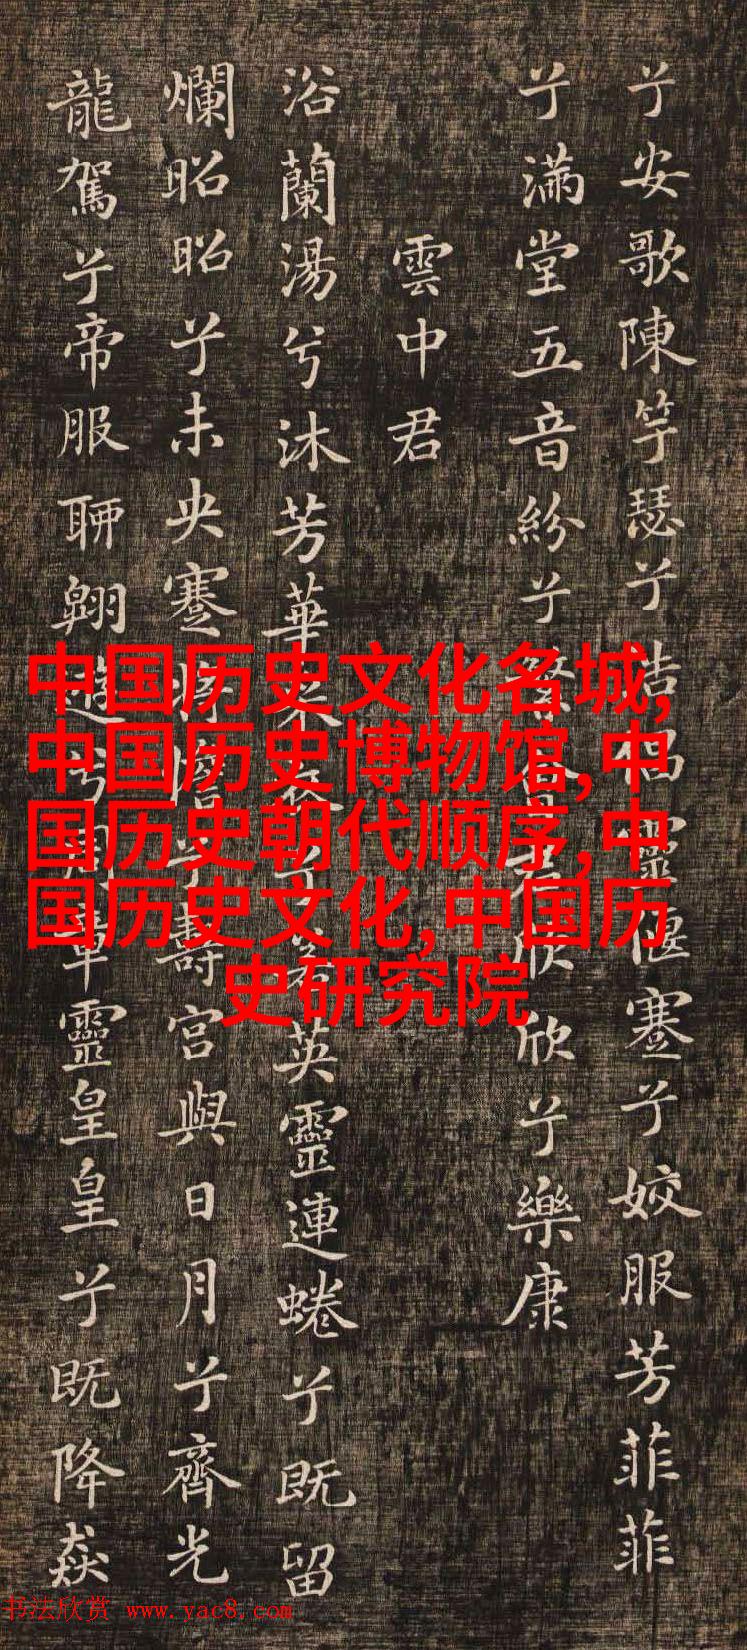 兮安歌陳竽瑟兮浩倡靈偃蹇兮姣服芳菲菲
兮滿堂五音紛兮繁會君欣欣兮樂康
雲中君
浴蘭湯兮沐芳華采衣兮若英靈連蜷兮既留
爛昭昭兮未央蹇將憺兮壽宮與日月兮齊光
龍駕兮帝服聊翱遊兮周章靈皇皇兮既降猋
中国历史文化名城,
中国历史博物馆,中
国历史朝代顺序,中
国历史文化,中国历
史研究院
书法欣赏 www.yac8.com